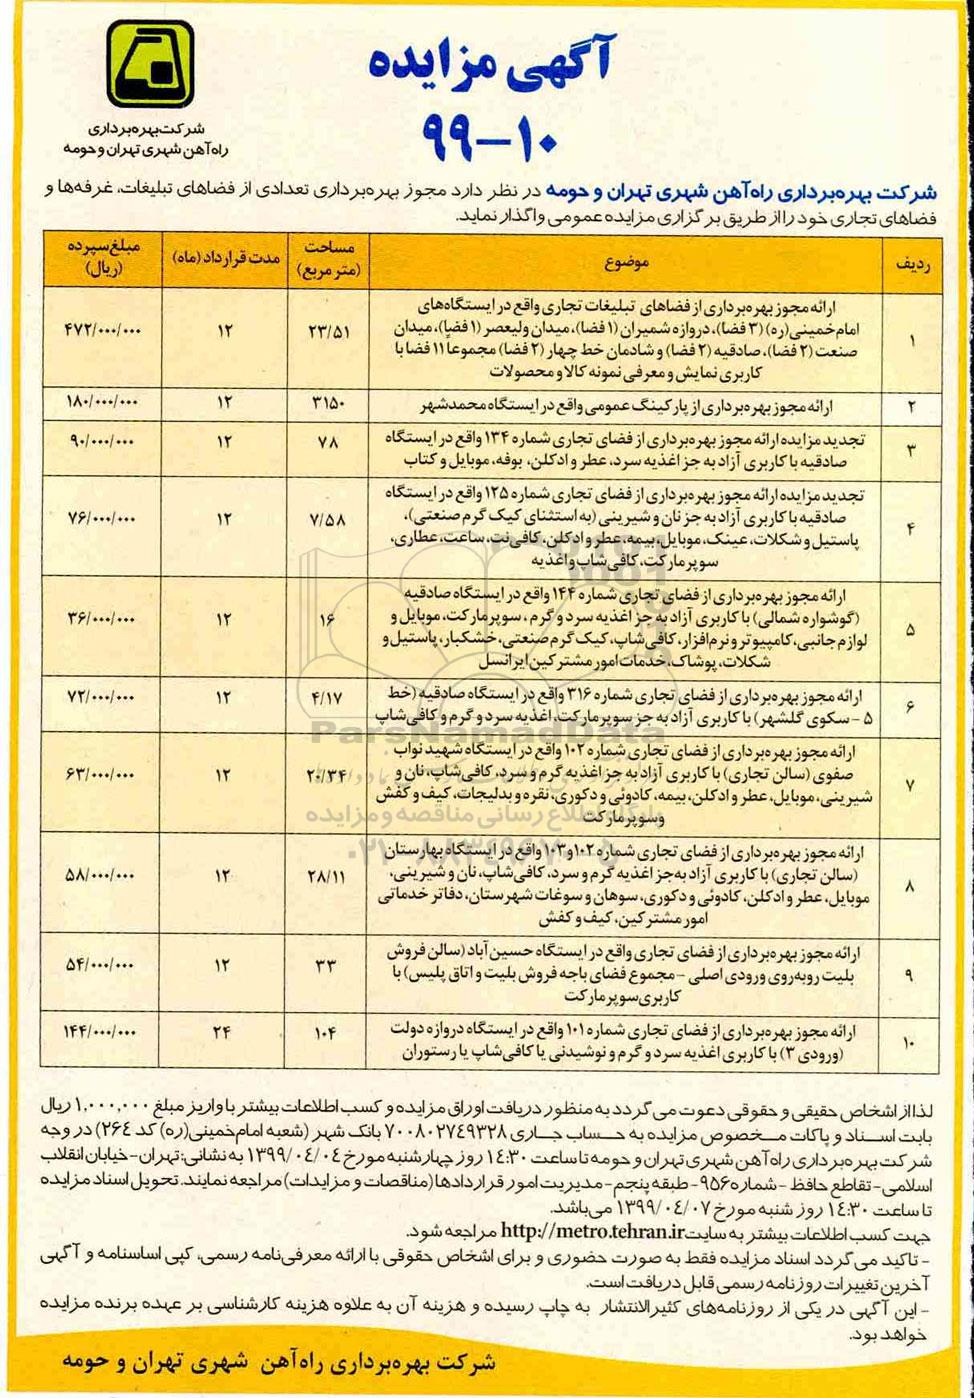 آگهی مزایده
۹۹-۱۰
شرکت بهره‌برداری
راه‌آهن شهری تهران و حومه
شرکت بهره‌برداری راه‌آهن شهری تهران و حومه در نظر دارد مجوز بهره‌برداری تعدادی از فضاهای تبلیغات، غرفه‌ها و
فضاهای تجاری خود را از طریق برگزاری مزایده عمومی واگذار نماید.
ردیف موضوع مساحت (متر مربع) مدت قرارداد (ماه) مبلغ سپرده (ریال)
۱ ارائه مجوز بهره‌برداری از فضاهای تبلیغات تجاری واقع در ایستگاه‌های
امام‌خمینی(ره) (۳ فضا)، دروازه شمیران (۱ فضا)، میدان ولیعصر (۱ فضا)، میدان
صنعت (۲ فضا)، صادقیه (۲ فضا) و شادمان خط چهار (۲ فضا) مجموعا ۱۱ فضا با
کاربری نمایش و معرفی نمونه کالا و محصولات
۲۳/۵۱ ۱۲ ۴۷۲/۰۰۰/۰۰۰
۲ ارائه مجوز بهره‌برداری از پارکینگ عمومی واقع در ایستگاه محمدشهر ۳۱۵۰ ۱۲ ۱۸۰/۰۰۰/۰۰۰
۳ تجدید مزایده ارائه مجوز بهره‌برداری از فضای تجاری شماره ۱۳۴ واقع در ایستگاه
صادقیه با کاربری آزاد به جز اغذیه سرد، عطر و ادکلن، بوفه، موبایل و کتاب
۷۸ ۱۲ ۹۰/۰۰۰/۰۰۰
۴ تجدید مزایده ارائه مجوز بهره‌برداری از فضای تجاری شماره ۱۲۵ واقع در ایستگاه
صادقیه با کاربری آزاد به جز نان و شیرینی (به استثنای کیک گرم صنعتی)،
پاستیل و شکلات، عینک، موبایل، بیمه، عطر و ادکلن، کافی‌نت، ساعت، عطاری،
سوپرمارکت، کافی‌شاپ و اغذیه
۷/۵۸ ۱۲ ۷۶/۰۰۰/۰۰۰
۵ ارائه مجوز بهره‌برداری از فضای تجاری شماره ۱۴۴ واقع در ایستگاه صادقیه
(گوشواره شمالی) با کاربری آزاد به جز اغذیه سرد و گرم، سوپرمارکت، موبایل و
لوازم جانبی، کامپیوتر و نرم‌افزار، کافی‌شاپ، کیک گرم صنعتی، خشکبار، پاستیل و
شکلات، پوشاک، خدمات امور مشترکین ایرانسل
۱۶ ۱۲ ۳۶/۰۰۰/۰۰۰
۶ ارائه مجوز بهره‌برداری از فضای تجاری شماره ۳۱۶ واقع در ایستگاه صادقیه (خط
۵ - سکوی گلشهر) با کاربری آزاد به جز سوپرمارکت، اغذیه سرد و گرم و کافی‌شاپ
۴/۱۷ ۱۲ ۷۲/۰۰۰/۰۰۰
۷ ارائه مجوز بهره‌برداری از فضای تجاری شماره ۱۰۲ واقع در ایستگاه شهید نواب
صفوی (سالن تجاری) با کاربری آزاد به جز اغذیه گرم و سرد، کافی‌شاپ، نان و
شیرینی، موبایل، عطر و ادکلن، بیمه، کادوئی و دکوری، نقره و بدلیجات، کیف و کفش
و سوپرمارکت
۲۰/۳۴ ۱۲ ۶۳/۰۰۰/۰۰۰
۸ ارائه مجوز بهره‌برداری از فضای تجاری شماره ۱۰۲و۱۰۳ واقع در ایستگاه بهارستان
(سالن تجاری) با کاربری آزاد به‌جز اغذیه گرم و سرد، کافی‌شاپ، نان و شیرینی،
موبایل، عطر و ادکلن، کادوئی و دکوری، سوهان و سوغات شهرستان، دفاتر خدماتی
امور مشترکین، کیف و کفش
۲۸/۱۱ ۱۲ ۵۸/۰۰۰/۰۰۰
۹ ارائه مجوز بهره‌برداری از فضای تجاری واقع در ایستگاه حسین‌آباد (سالن فروش
بلیت روبه‌روی ورودی اصلی - مجموع فضای باجه فروش بلیت و اتاق پلیس) با
کاربری سوپرمارکت
۳۳ ۱۲ ۵۴/۰۰۰/۰۰۰
۱۰ ارائه مجوز بهره‌برداری از فضای تجاری شماره ۱۰۱ واقع در ایستگاه دروازه دولت
(ورودی ۳) با کاربری اغذیه سرد و گرم و نوشیدنی یا کافی‌شاپ یا رستوران
۱۰۴ ۲۴ ۱۴۴/۰۰۰/۰۰۰
ParsNamadData
پایگاه اطلاع رسانی مناقصه و مزایده
لذا از اشخاص حقیقی و حقوقی دعوت می‌گردد به منظور دریافت اوراق مزایده و کسب اطلاعات بیشتر با واریز مبلغ ۱,۰۰۰,۰۰۰ ریال
بابت اسناد و پاکات مخصوص مزایده به حساب جاری ۷۰۰۸۰۲۷۴۹۳۲۸ بانک شهر (شعبه امام‌خمینی(ره) کد ۲۶۴) در وجه
شرکت بهره‌برداری راه‌آهن شهری تهران و حومه تا ساعت ۱۴:۳۰ روز چهارشنبه مورخ ۱۳۹۹/۰۴/۰۴ به نشانی: تهران- خیابان انقلاب
اسلامی- تقاطع حافظ - شماره ۹۵۶ - طبقه پنجم - مدیریت امور قراردادها (مناقصات و مزایدات) مراجعه نمایند. تحویل اسناد مزایده
تا ساعت ۱۴:۳۰ روز شنبه مورخ ۱۳۹۹/۰۴/۰۷ می‌باشد.
جهت کسب اطلاعات بیشتر به سایت http://metro.tehran.ir مراجعه شود.
- تاکید می‌گردد اسناد مزایده فقط به صورت حضوری و برای اشخاص حقوقی با ارائه معرفی‌نامه رسمی، کپی اساسنامه و آگهی
آخرین تغییرات روزنامه رسمی قابل دریافت است.
- این آگهی در یکی از روزنامه‌های کثیرالانتشار به چاپ رسیده و هزینه آن به علاوه هزینه کارشناسی بر عهده برنده مزایده
خواهد بود.
شرکت بهره‌برداری راه‌آهن شهری تهران و حومه